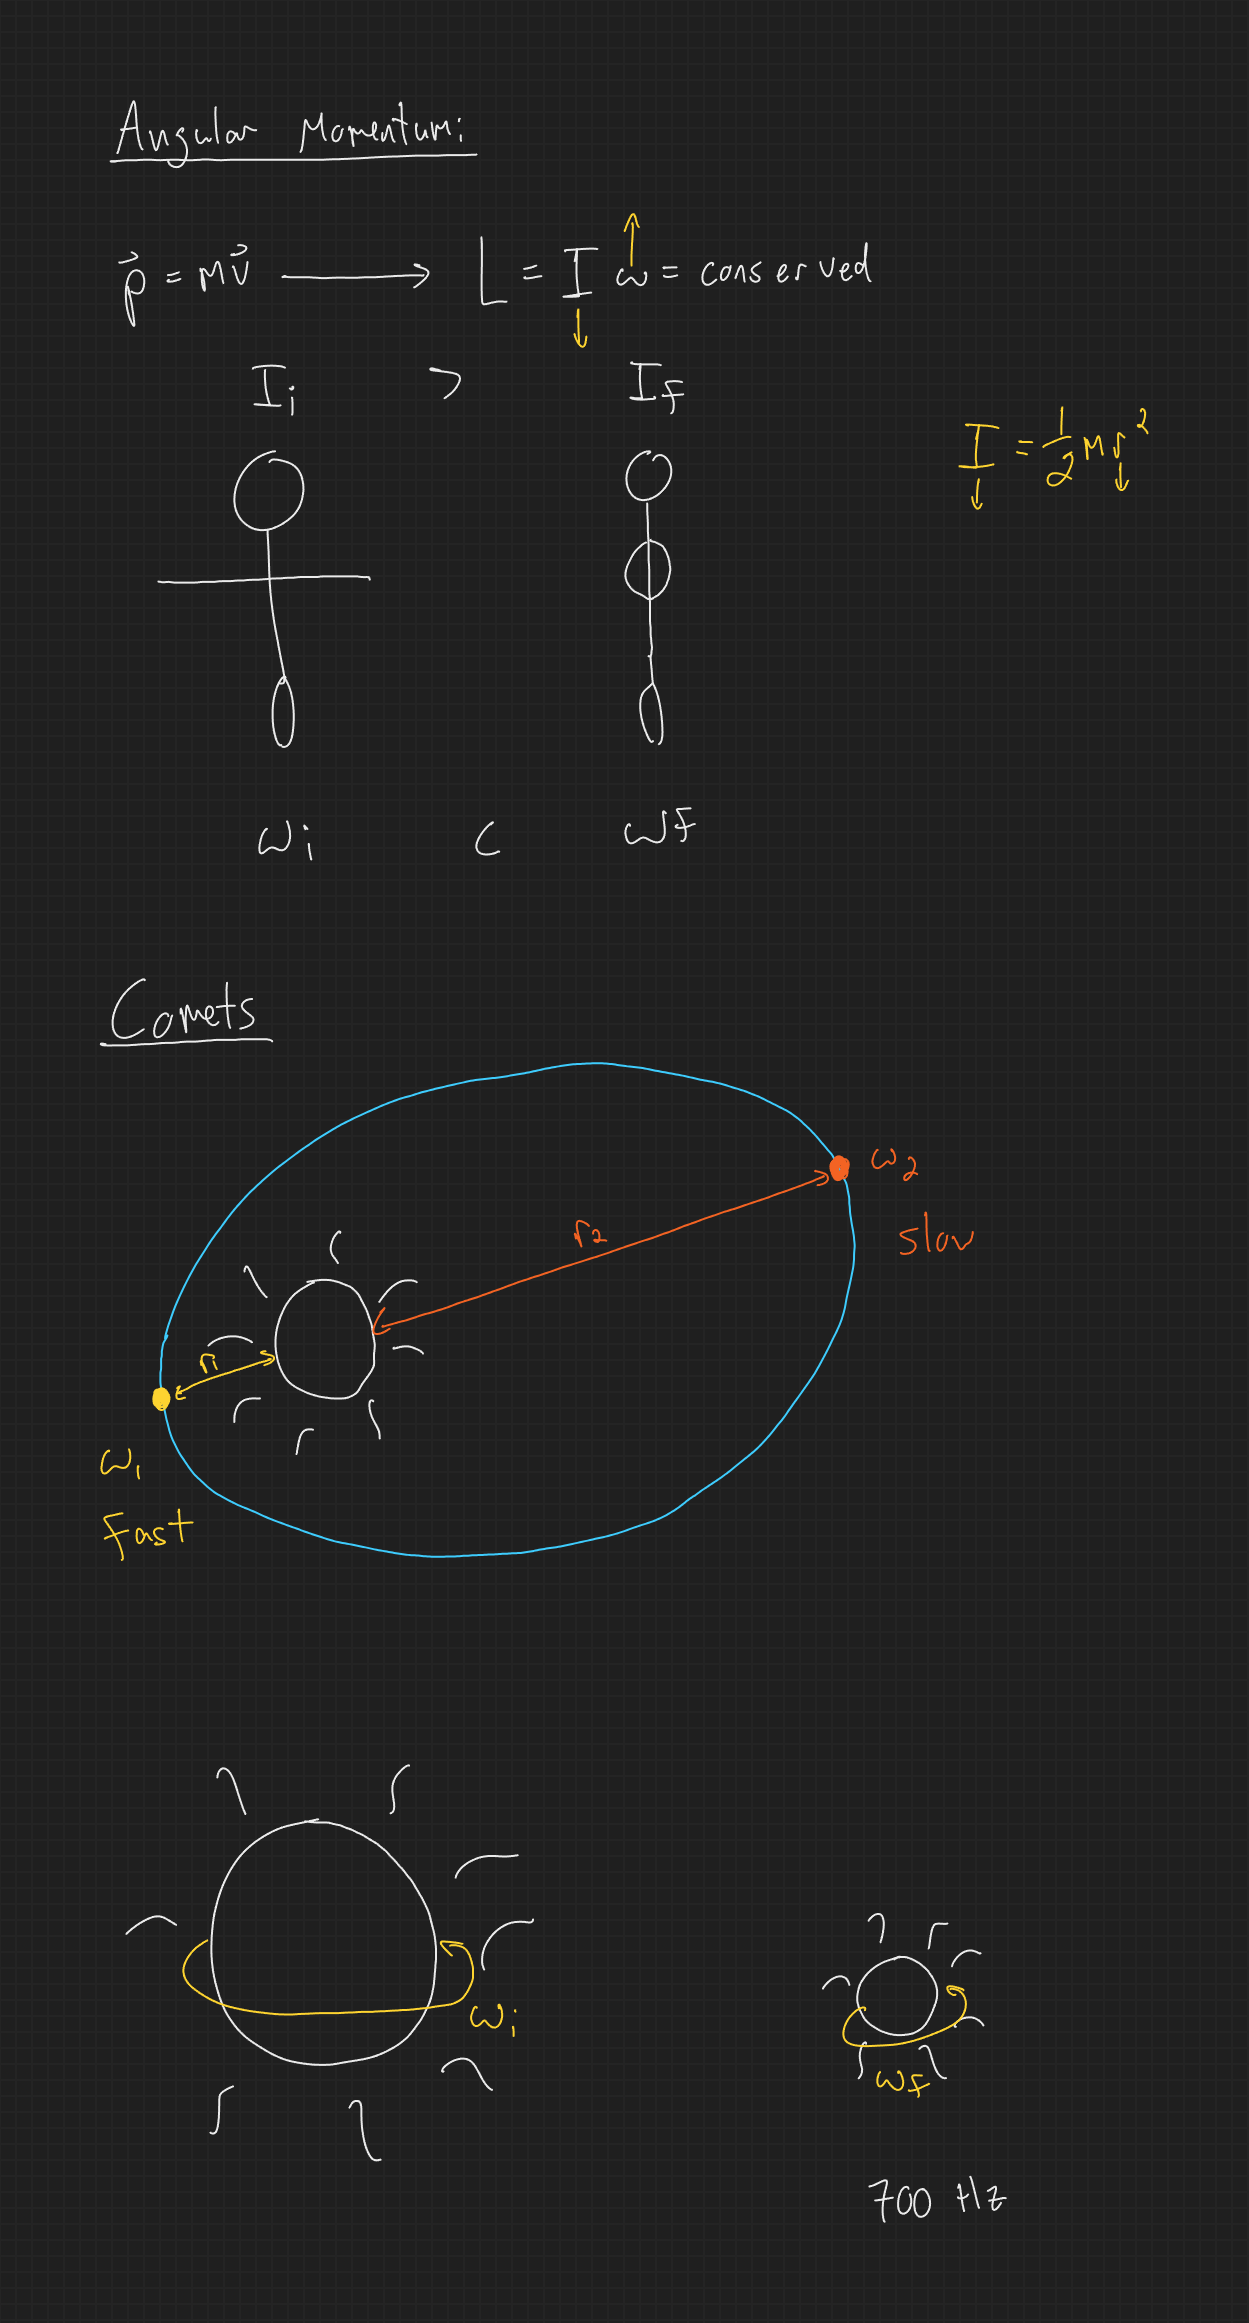 Angular Momentum:
p⃗ = mv⃗ ⟶ L = I ω = conserved
↑
↓
I_i > I_f
I = 1/2 m r²
↓ ↓
ω_i < ω_f
Comets
ω₂
r₂
slow
r₁
ω₁
Fast
ω_i
ω_f
700 Hz